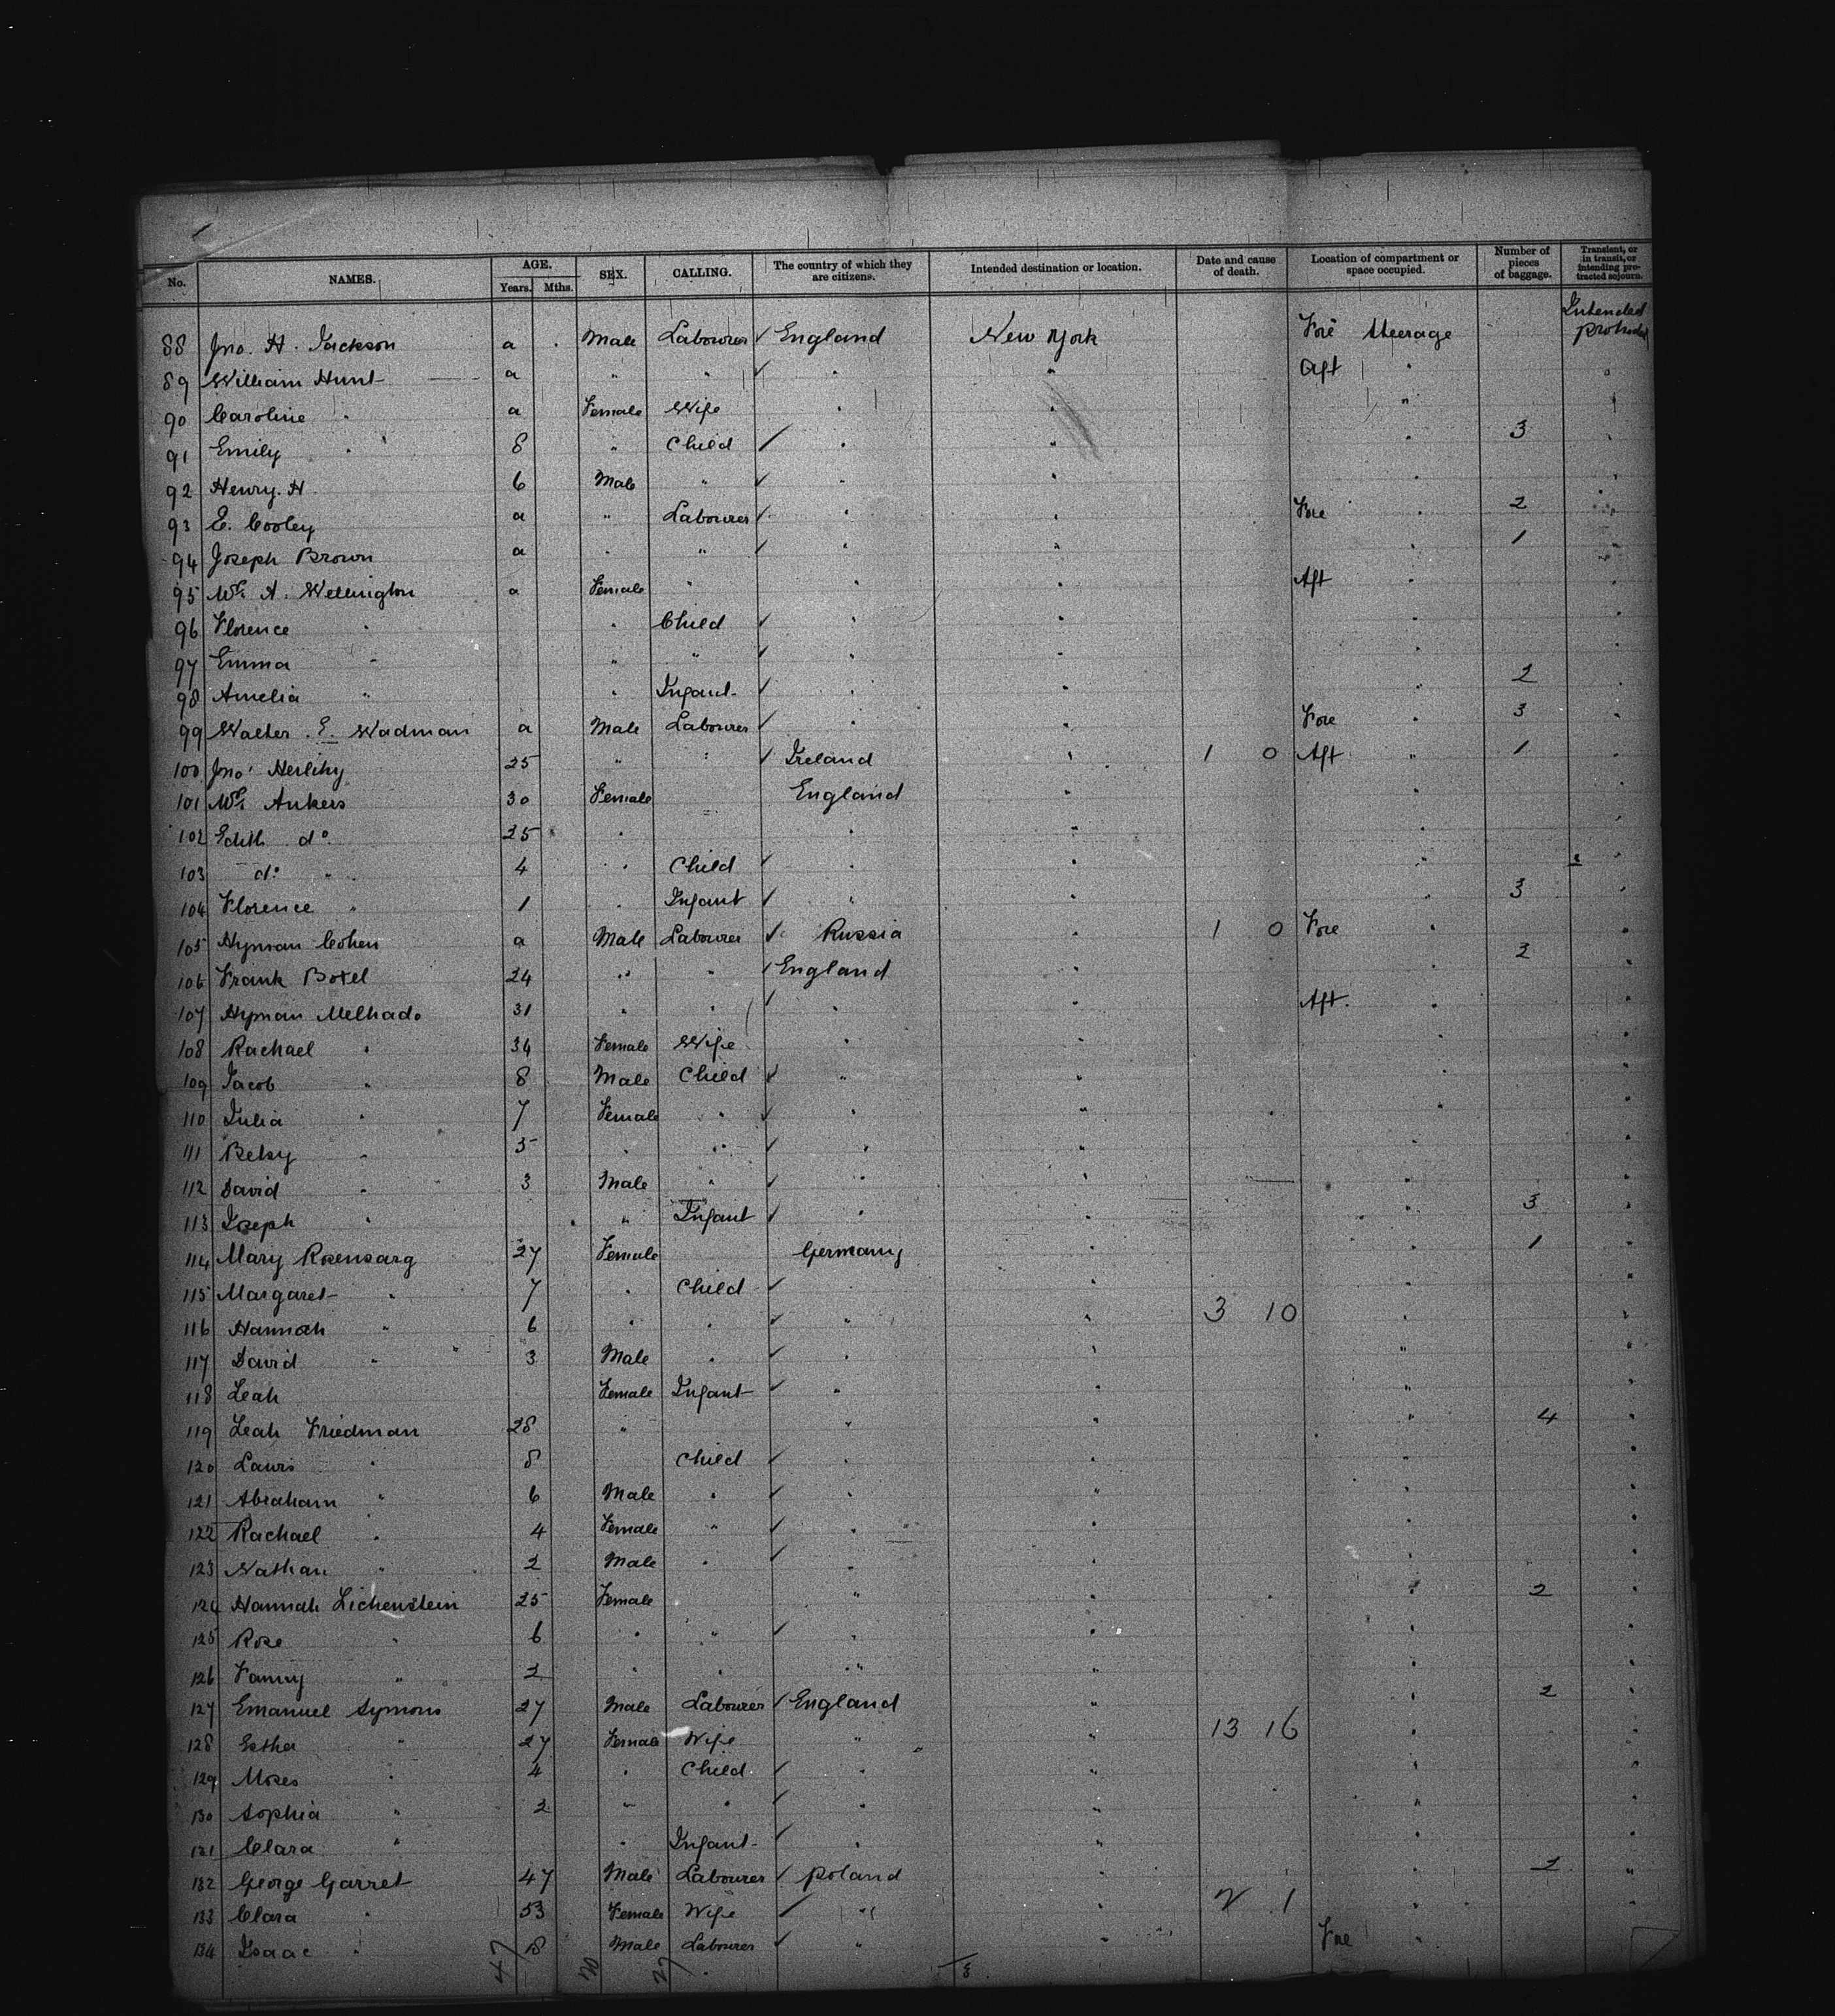 No. NAMES. AGE. Years. Mths. SEX. CALLING. The country of which they are citizens. Intended destination or location. Date and cause of death. Location of compartment or space occupied. Number of pieces of baggage. Transient, or in transit, or intending protracted sojourn.
88 Jno. H. Jackson a Male Labourer England New York Fore Steerage Intended protracted
89 William Hunt a " " " " Aft " "
90 Caroline " a Female Wife " " " "
91 Emily " 8 " Child " " " 3 "
92 Henry. H. 6 Male " " " " "
93 E. Cooley a " Labourer " " Fore " 2 "
94 Joseph Brown a " " " " " 1 "
95 Mrs. A. Wellington a Female " " " Aft " "
96 Florence " " Child " " " "
97 Emma " " " " " " "
98 Amelia " " Infant " " " 2 "
99 Walter E. Wadman a Male Labourer " " Fore " 3 "
100 Jno. Herlihy 25 " " Ireland " 1 0 Aft " 1 "
101 Mrs. Ankers 30 Female England " " "
102 Edith do. 25 " " " " "
103 do. " 4 " Child " " " "
104 Florence " 1 " Infant " " " 3 "
105 Hyman Cohen a Male Labourer Russia " 1 0 Fore " "
106 Frank Botel 24 " " England " " 2 "
107 Hyman Melhado 31 " " " " Aft. " "
108 Rachael " 34 Female Wife " " " "
109 Jacob " 8 Male Child " " "
110 Julia " 7 Female " " " " "
111 Betsy " 5 " " " " " "
112 David " 3 Male " " " " "
113 Joseph " " Infant " " " 3 "
114 Mary Rosensarg 27 Female Germany " " 1 "
115 Margaret " 7 " Child " " "
116 Hannah " 6 " " " " 3 10 " "
117 David " 3 Male " " " " "
118 Leah Female Infant " " " "
119 Leah Friedman 28 " " " " 4 "
120 Lauris " 8 Child " " " "
121 Abraham " 6 Male " " " " "
122 Rachael " 4 Female " " " " "
123 Nathan " 2 Male " " " " "
124 Hannah Lichenstein 25 Female " " " 2 "
125 Rose " 6 " " " " " "
126 Fanny " 2 " " " " " "
127 Emanuel Symons 27 Male Labourer England " " 2 "
128 Esther " 27 Female Wife " " 13 16 " "
129 Moses " 4 " Child " " " "
130 Sophia " 2 " " " " " "
131 Clara " " Infant " " " "
132 George Garret 47 Male Labourer Poland " " 2 "
133 Clara " 53 Female Wife " " 2 1 " "
134 Isaac " 18 Male Labourer " " Fore "
47 20 27